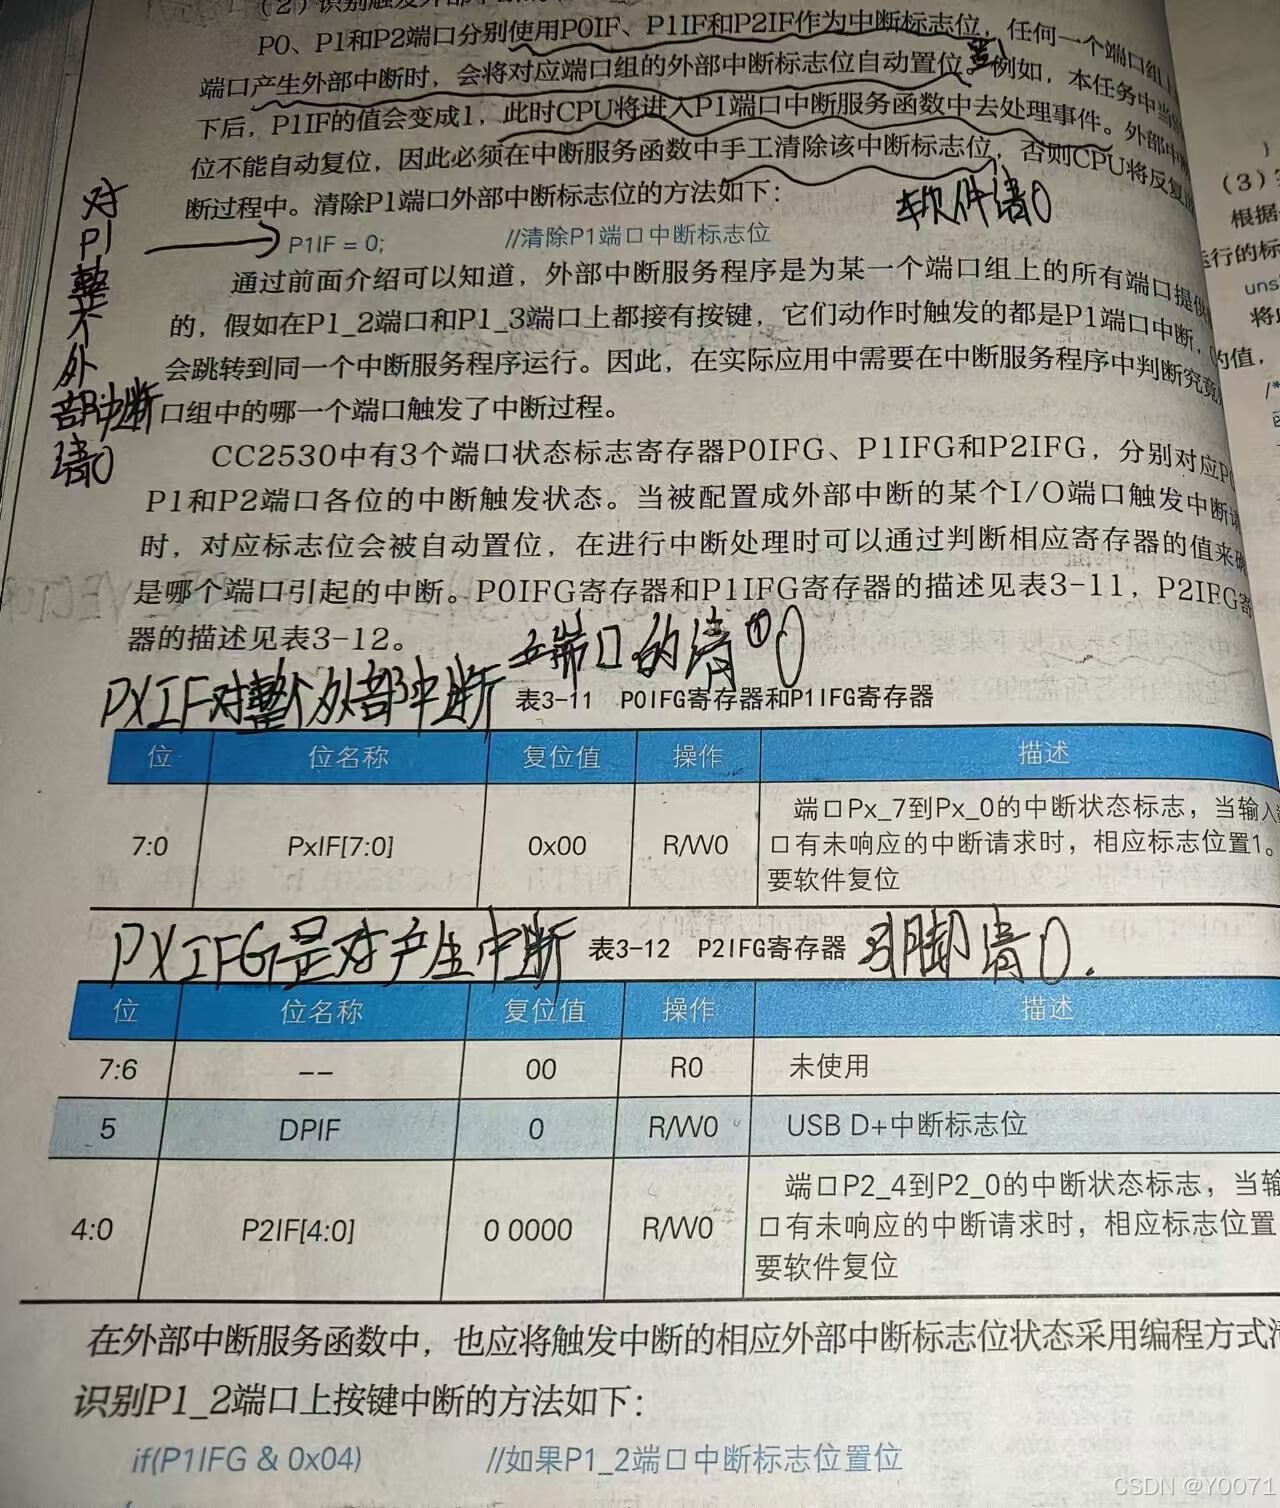 (2) 识别触发外部中断
P0、P1和P2端口分别使用P0IF、P1IF和P2IF作为中断标志位，任何一个端口组上
端口产生外部中断时，会将对应端口组的外部中断标志位自动置位。例如，本任务中当
置1
下后，P1IF的值会变成1，此时CPU将进入P1端口中断服务函数中去处理事件。外部中断
位不能自动复位，因此必须在中断服务函数中手工清除该中断标志位，否则CPU将反复
断过程中。清除P1端口外部中断标志位的方法如下：
软件清0
P1IF = 0; //清除P1端口中断标志位
对
P1
整
个
外
部中断
清0
通过前面介绍可以知道，外部中断服务程序是为某一个端口组上的所有端口提供
的，假如在P1_2端口和P1_3端口上都接有按键，它们动作时触发的都是P1端口中断，
会跳转到同一个中断服务程序运行。因此，在实际应用中需要在中断服务程序中判断究竟
口组中的哪一个端口触发了中断过程。
CC2530中有3个端口状态标志寄存器P0IFG、P1IFG和P2IFG，分别对应P0
P1和P2端口各位的中断触发状态。当被配置成外部中断的某个I/O端口触发中断请
时，对应标志位会被自动置位，在进行中断处理时可以通过判断相应寄存器的值来确
是哪个端口引起的中断。P0IFG寄存器和P1IFG寄存器的描述见表3-11，P2IFG寄
器的描述见表3-12。
PXIF对整个外部中断
端口的清0
表3-11 P0IFG寄存器和P1IFG寄存器
位 位名称 复位值 操作 描述
7:0 PxIF[7:0] 0x00 R/W0 端口Px_7到Px_0的中断状态标志，当输入
口有未响应的中断请求时，相应标志位置1。
要软件复位
PXIFG是对产生中断
表3-12 P2IFG寄存器
引脚清0.
位 位名称 复位值 操作 描述
7:6 -- 00 R0 未使用
5 DPIF 0 R/W0 USB D+中断标志位
4:0 P2IF[4:0] 0 0000 R/W0 端口P2_4到P2_0的中断状态标志，当输
口有未响应的中断请求时，相应标志位置
要软件复位
在外部中断服务函数中，也应将触发中断的相应外部中断标志位状态采用编程方式清
识别P1_2端口上按键中断的方法如下：
if(P1IFG & 0x04) //如果P1_2端口中断标志位置位
(3)
根据
运行的标
uns
将
的值，
/*
CSDN @Y0071